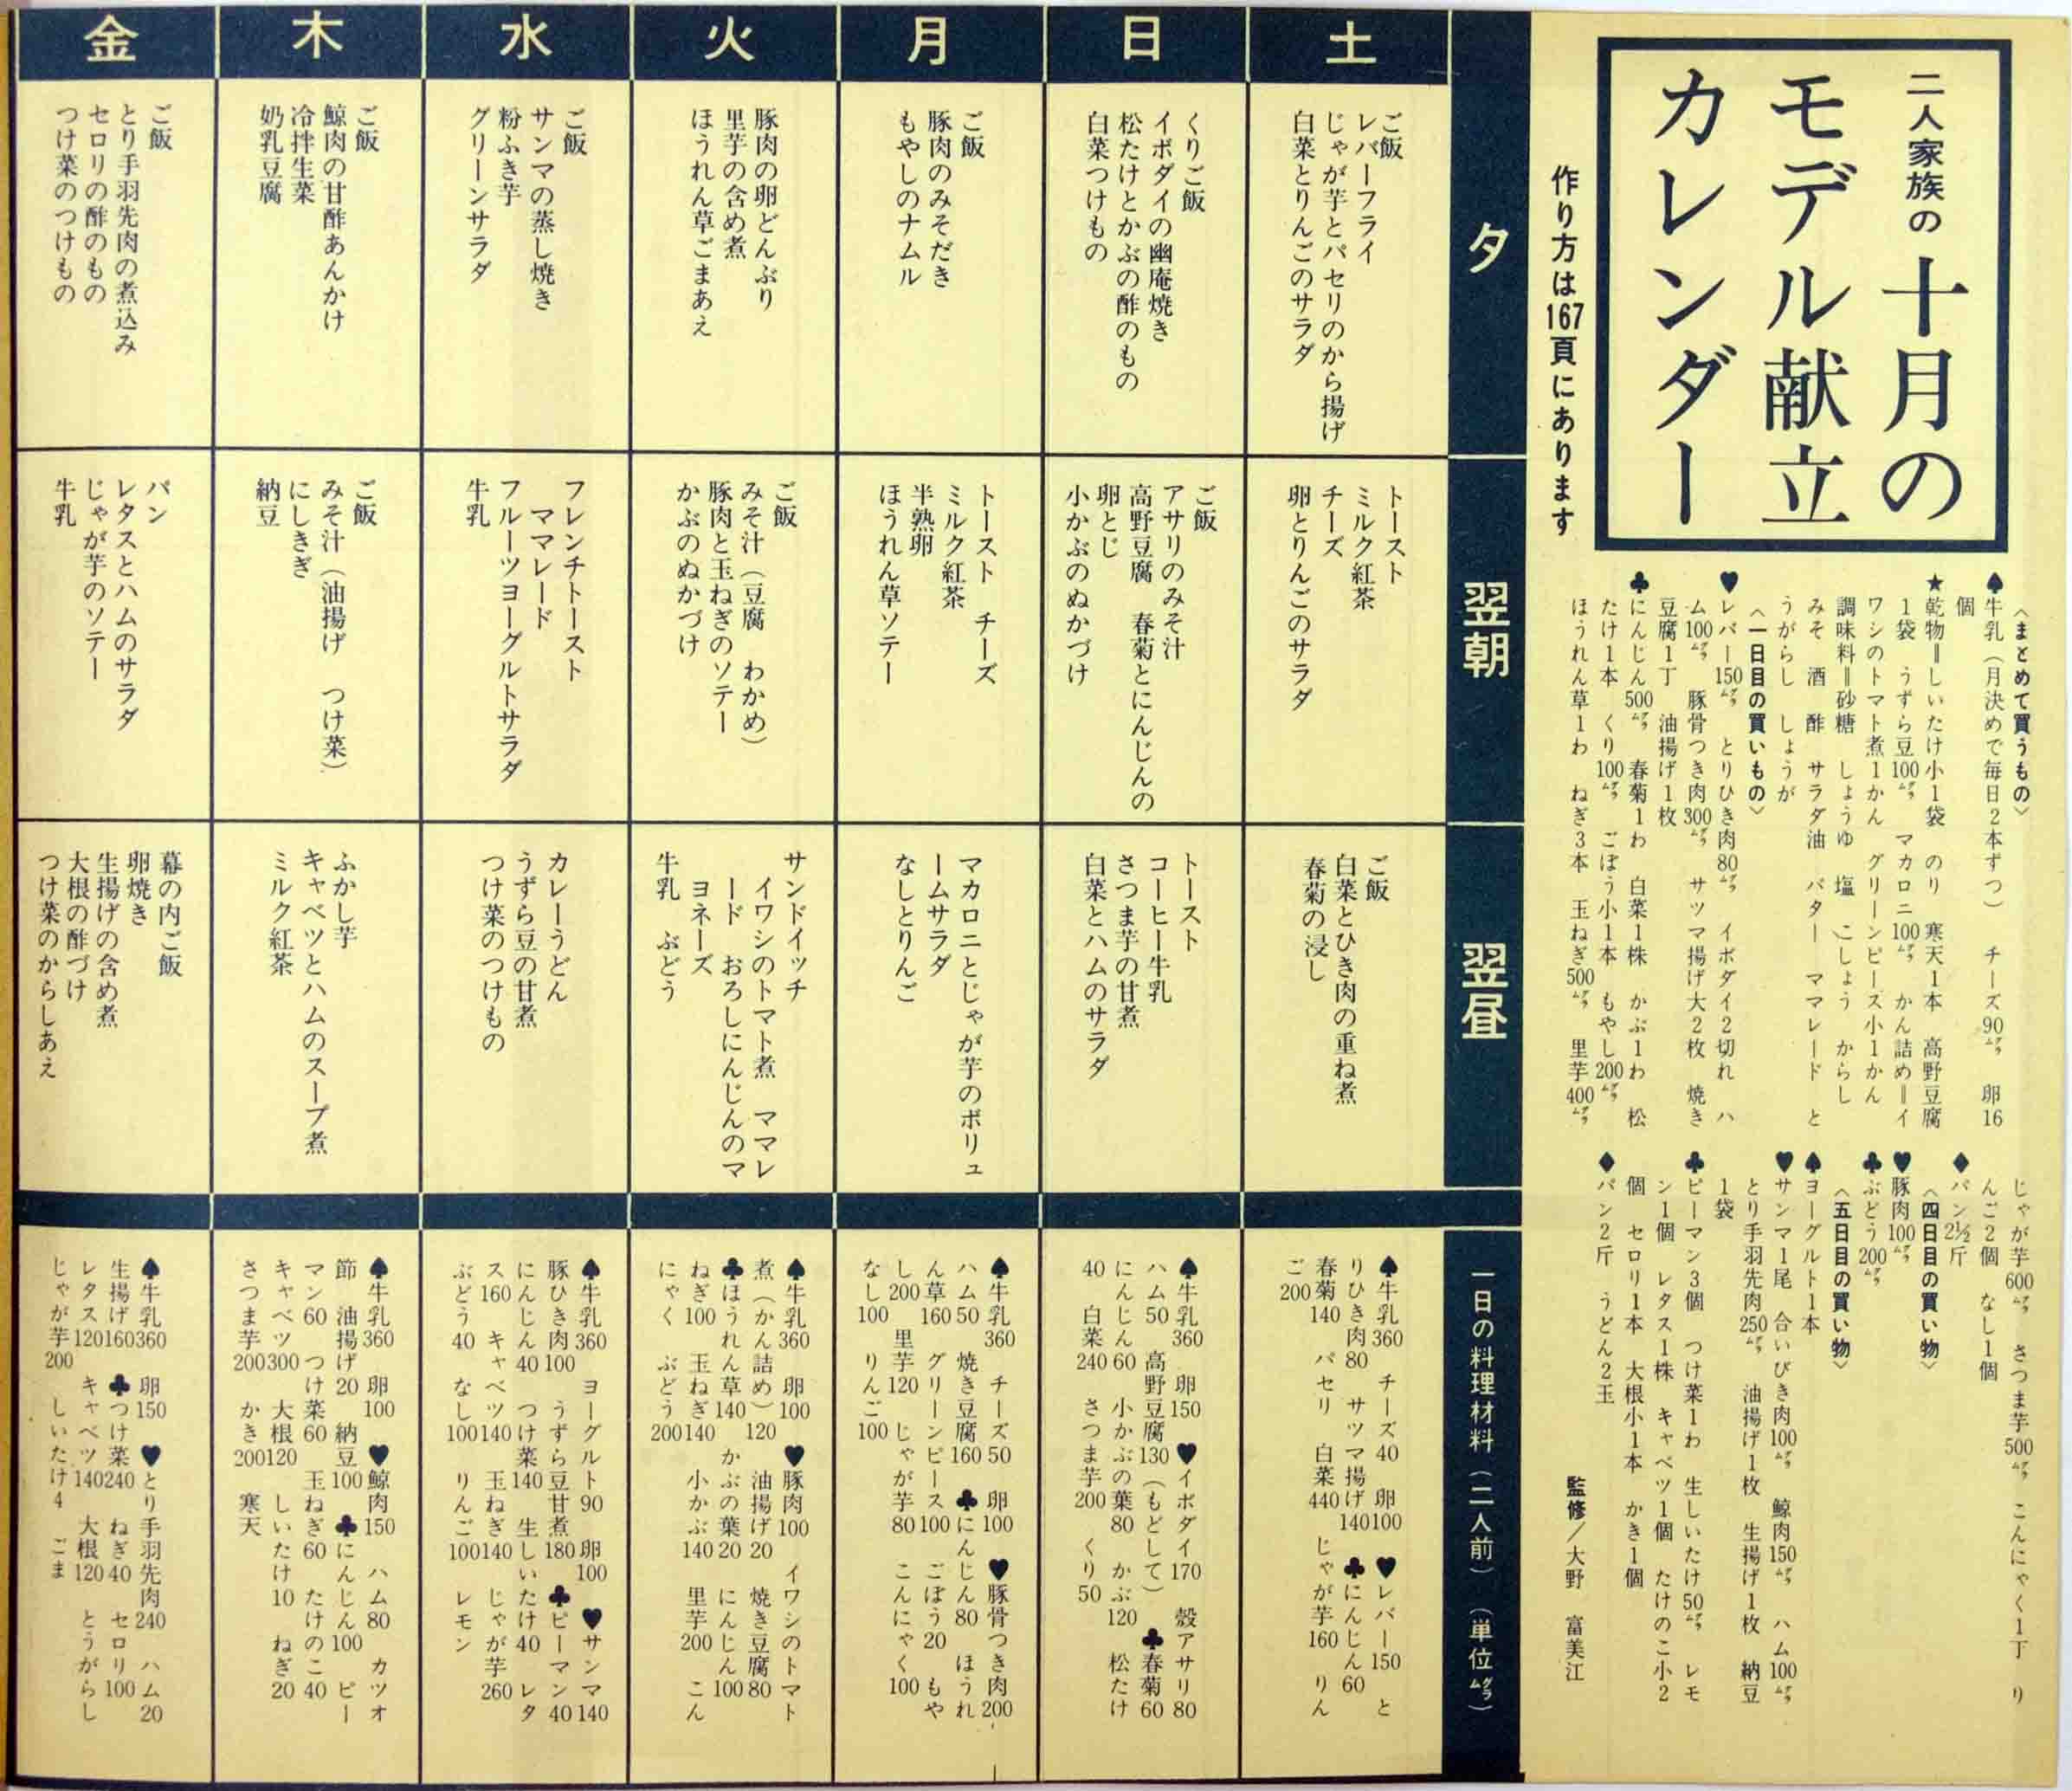 二人家族の十月の
モデル献立
カレンダー
作り方は167頁にあります
〈まとめて買うもの〉
♠牛乳(月決めで毎日2本ずつ) チーズ90㌘ 卵16
個
★乾物=しいたけ小1袋 のり 寒天1本 高野豆腐
1袋 うずら豆100㌘ マカロニ100㌘ かん詰め=イ
ワシのトマト煮1かん グリーンピース小1かん
調味料=砂糖 しょうゆ 塩 こしょう からし
みそ 酒 酢 サラダ油 バター ママレード と
うがらし しょうが
〈一日目の買いもの〉
♥レバー150㌘ とりひき肉80㌘ イボダイ2切れ ハ
ム100㌘ 豚骨つき肉300㌘ サツマ揚げ大2枚 焼き
豆腐1丁 油揚げ1枚
♣にんじん500㌘ 春菊1わ 白菜1株 かぶ1わ 松
たけ1本 くり100㌘ ごぼう小1本 もやし200㌘
ほうれん草1わ ねぎ3本 玉ねぎ500㌘ 里芋400㌘
じゃが芋600㌘ さつま芋500㌘ こんにゃく1丁 り
んご2個 なし1個
♦パン2½斤
〈四日目の買い物〉
♥豚肉100㌘
♣ぶどう200㌘
〈五日目の買い物〉
♠ヨーグルト1本
♥サンマ1尾 合いびき肉100㌘ 鯨肉150㌘ ハム100㌘
とり手羽先肉250㌘ 油揚げ1枚 生揚げ1枚 納豆
1袋
♣ピーマン3個 つけ菜1わ 生しいたけ50㌘ レモ
ン1個 レタス1株 キャベツ1個 たけのこ小2
個 セロリ1本 大根小1本 かき1個
♦パン2斤 うどん2玉
監修/大野 富美江
夕
翌朝
翌昼
一日の料理材料(二人前)(単位㌘)
土
ご飯
レバーフライ
じゃが芋とパセリのから揚げ
白菜とりんごのサラダ
トースト
ミルク紅茶
チーズ
卵とりんごのサラダ
ご飯
白菜とひき肉の重ね煮
春菊の浸し
♠牛乳360 チーズ40 卵100 ♥レバー150 と
りひき肉80 サツマ揚げ140 ♣にんじん60
春菊140 パセリ 白菜440 じゃが芋160 りん
ご200
日
くりご飯
イボダイの幽庵焼き
松たけとかぶの酢のもの
白菜つけもの
ご飯
アサリのみそ汁
高野豆腐 春菊とにんじんの
卵とじ
小かぶのぬかづけ
トースト
コーヒー牛乳
さつま芋の甘煮
白菜とハムのサラダ
♠牛乳360 卵150 ♥イボダイ170 殻アサリ80
ハム50 高野豆腐130(もどして) ♣春菊60
にんじん60 小かぶの葉80 かぶ120 松たけ
40 白菜240 さつま芋200 くり50
月
ご飯
豚肉のみそだき
もやしのナムル
トースト チーズ
ミルク紅茶
半熟卵
ほうれん草ソテー
マカロニとじゃが芋のボリュ
ームサラダ
なしとりんご
♠牛乳360 チーズ50 卵100 ♥豚骨つき肉200
ハム50 焼き豆腐160 ♣にんじん80 ほうれ
ん草160 グリーンピース100 ごぼう20 もや
し200 里芋120 じゃが芋80 こんにゃく100
なし100 りんご100
火
豚肉の卵どんぶり
里芋の含め煮
ほうれん草ごまあえ
ご飯
みそ汁(豆腐 わかめ)
豚肉と玉ねぎのソテー
かぶのぬかづけ
サンドイッチ
イワシのトマト煮 ママレ
ード おろしにんじんのマ
ヨネーズ
牛乳 ぶどう
♠牛乳360 卵100 ♥豚肉100 イワシのトマト
煮(かん詰め)120 油揚げ20 焼き豆腐80
♣ほうれん草140 かぶの葉20 にんじん100
ねぎ100 玉ねぎ140 小かぶ140 里芋200 こん
にゃく ぶどう200
水
ご飯
サンマの蒸し焼き
粉ふき芋
グリーンサラダ
フレンチトースト
ママレード
フルーツヨーグルトサラダ
牛乳
カレーうどん
うずら豆の甘煮
つけ菜のつけもの
♠牛乳360 ヨーグルト90 卵100 ♥サンマ140
豚ひき肉100 うずら豆甘煮180 ♣ピーマン40
にんじん40 つけ菜140 生しいたけ40 レタ
ス160 キャベツ140 玉ねぎ140 じゃが芋260
ぶどう40 なし100 りんご100 レモン
木
ご飯
鯨肉の甘酢あんかけ
冷拌生菜
奶乳豆腐
ご飯
みそ汁(油揚げ つけ菜)
にしきぎ
納豆
ふかし芋
キャベツとハムのスープ煮
ミルク紅茶
♠牛乳360 卵100 ♥鯨肉150 ハム80 カツオ
節 油揚げ20 納豆100 ♣にんじん100 ピー
マン60 つけ菜60 玉ねぎ60 たけのこ40
キャベツ300 大根120 しいたけ10 ねぎ20
さつま芋200 かき200 寒天
金
ご飯
とり手羽先肉の煮込み
セロリの酢のもの
つけ菜のつけもの
パン
レタスとハムのサラダ
じゃが芋のソテー
牛乳
幕の内ご飯
卵焼き
生揚げの含め煮
大根の酢づけ
つけ菜のからしあえ
♠牛乳360 卵150 ♥とり手羽先肉240 ハム20
生揚げ160 ♣つけ菜240 ねぎ40 セロリ100
レタス120 キャベツ140 大根120 とうがらし
じゃが芋200 しいたけ4 ごま